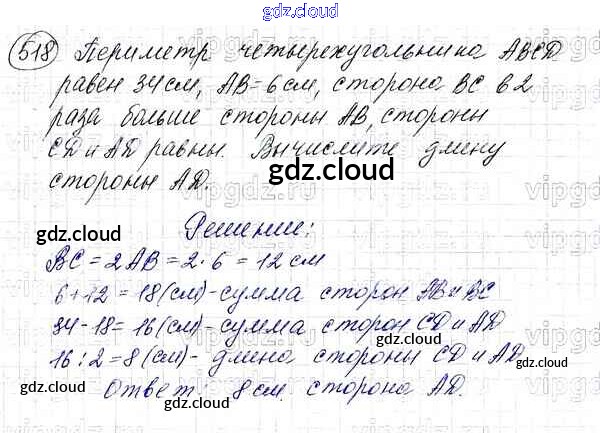 gdz.cloud
518 Периметр четырехугольника ABCD
равен 34 см, AB = 6 см, сторона BC в 2
раза больше стороны AB, стороны
CD и AD равны. Вычислите длину
стороны AD.
gdz.cloud
Решение:
gdz.cloud
BC = 2AB = 2·6 = 12 см
6+12 = 18 (см) - сумма сторон AB и BC
gdz.cloud
34-18 = 16 (см) - сумма сторон CD и AD
16:2 = 8 (см) - длина стороны CD и AD
gdz.cloud
Ответ: 8 см. сторона AD.
gdz.cloud
gdz.cloud
vipgdz.ru